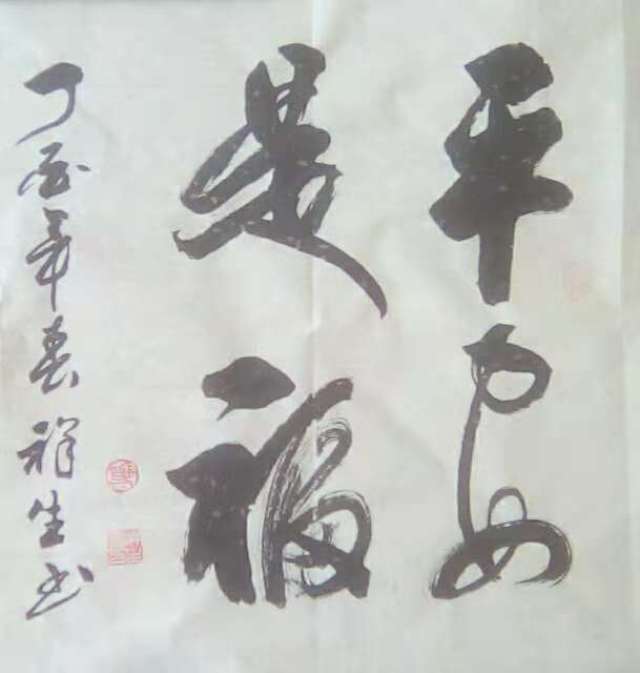 平安
是福
丁酉年春祥生书